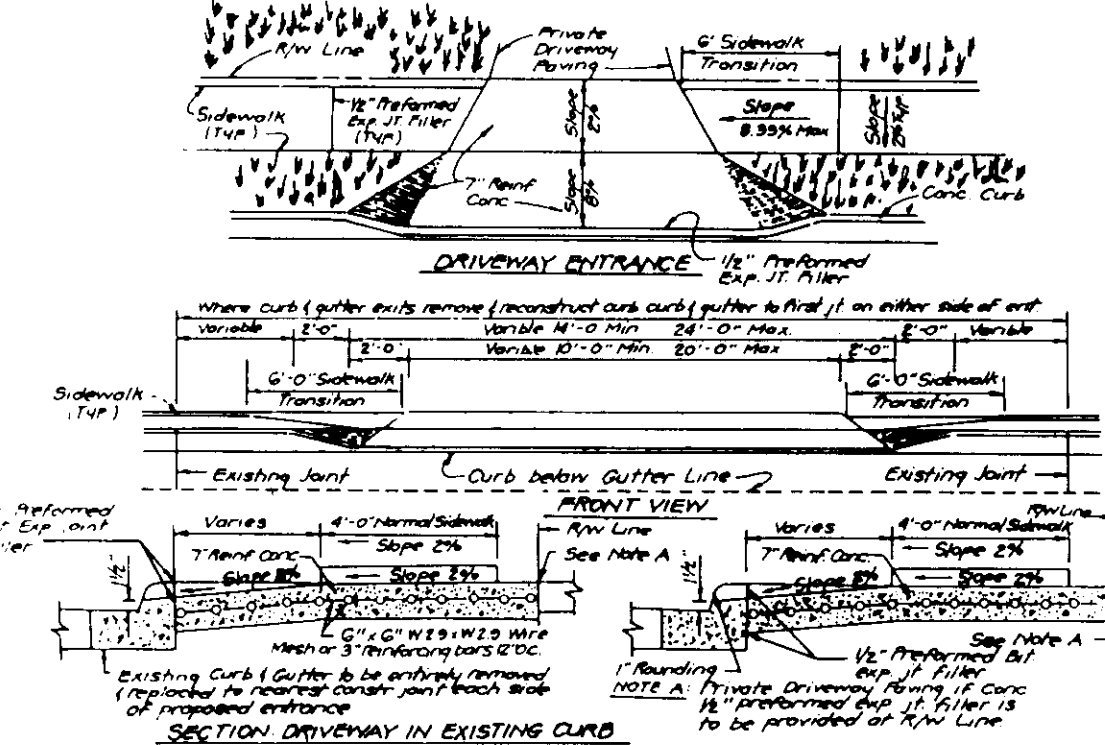 R/W Line
Private
Driveway
Paving
6' Sidewalk
Transition
Sidewalk
(TYP)
1/2" Preformed
Exp. JT. Filler
(TYP)
Slope
2%
Slope
8.33% Max
Slope
2% Typ
7" Reinf
Conc
Slope
8%
Conc. Curb
DRIVEWAY ENTRANCE
1/2" Preformed
Exp. JT. Filler
Where curb & gutter exits remove & reconstruct curb curb & gutter to first jt. on either side of ent.
Variable 2'-0" Varible 14'-0 Min 24'-0" Max. 2'-0" Variable
2'-0" Varible 10'-0" Min. 20'-0" Max 2'-0"
6'-0" Sidewalk
Transition
6'-0" Sidewalk
Transition
Sidewalk
(TYP)
Existing Joint
Curb below Gutter Line
Existing Joint
FRONT VIEW
Preformed
Exp. Joint
Varies
4'-0" Normal Sidewalk
R/W Line
Slope 2%
7" Reinf Conc.
See Note A
Slope 8%
Slope 2%
1 1/2"
6" x 6" W2.9 x W2.9 Wire
Mesh or 3" reinforcing bars 12" O.C.
Existing Curb & Gutter to be entirely removed
& replaced to nearest constr joint each side
of proposed entrance
SECTION DRIVEWAY IN EXISTING CURB
R/W Line
Varies
4'-0" Normal Sidewalk
Slope 2%
7" Reinf Conc.
1 1/2"
Slope 8%
Slope 2%
See Note A
1/2" Preformed Bit.
exp. jt filler
1" Rounding
NOTE A: Private Driveway Paving if Conc
1/2" preformed exp. jt. filler is
to be provided at R/W Line.